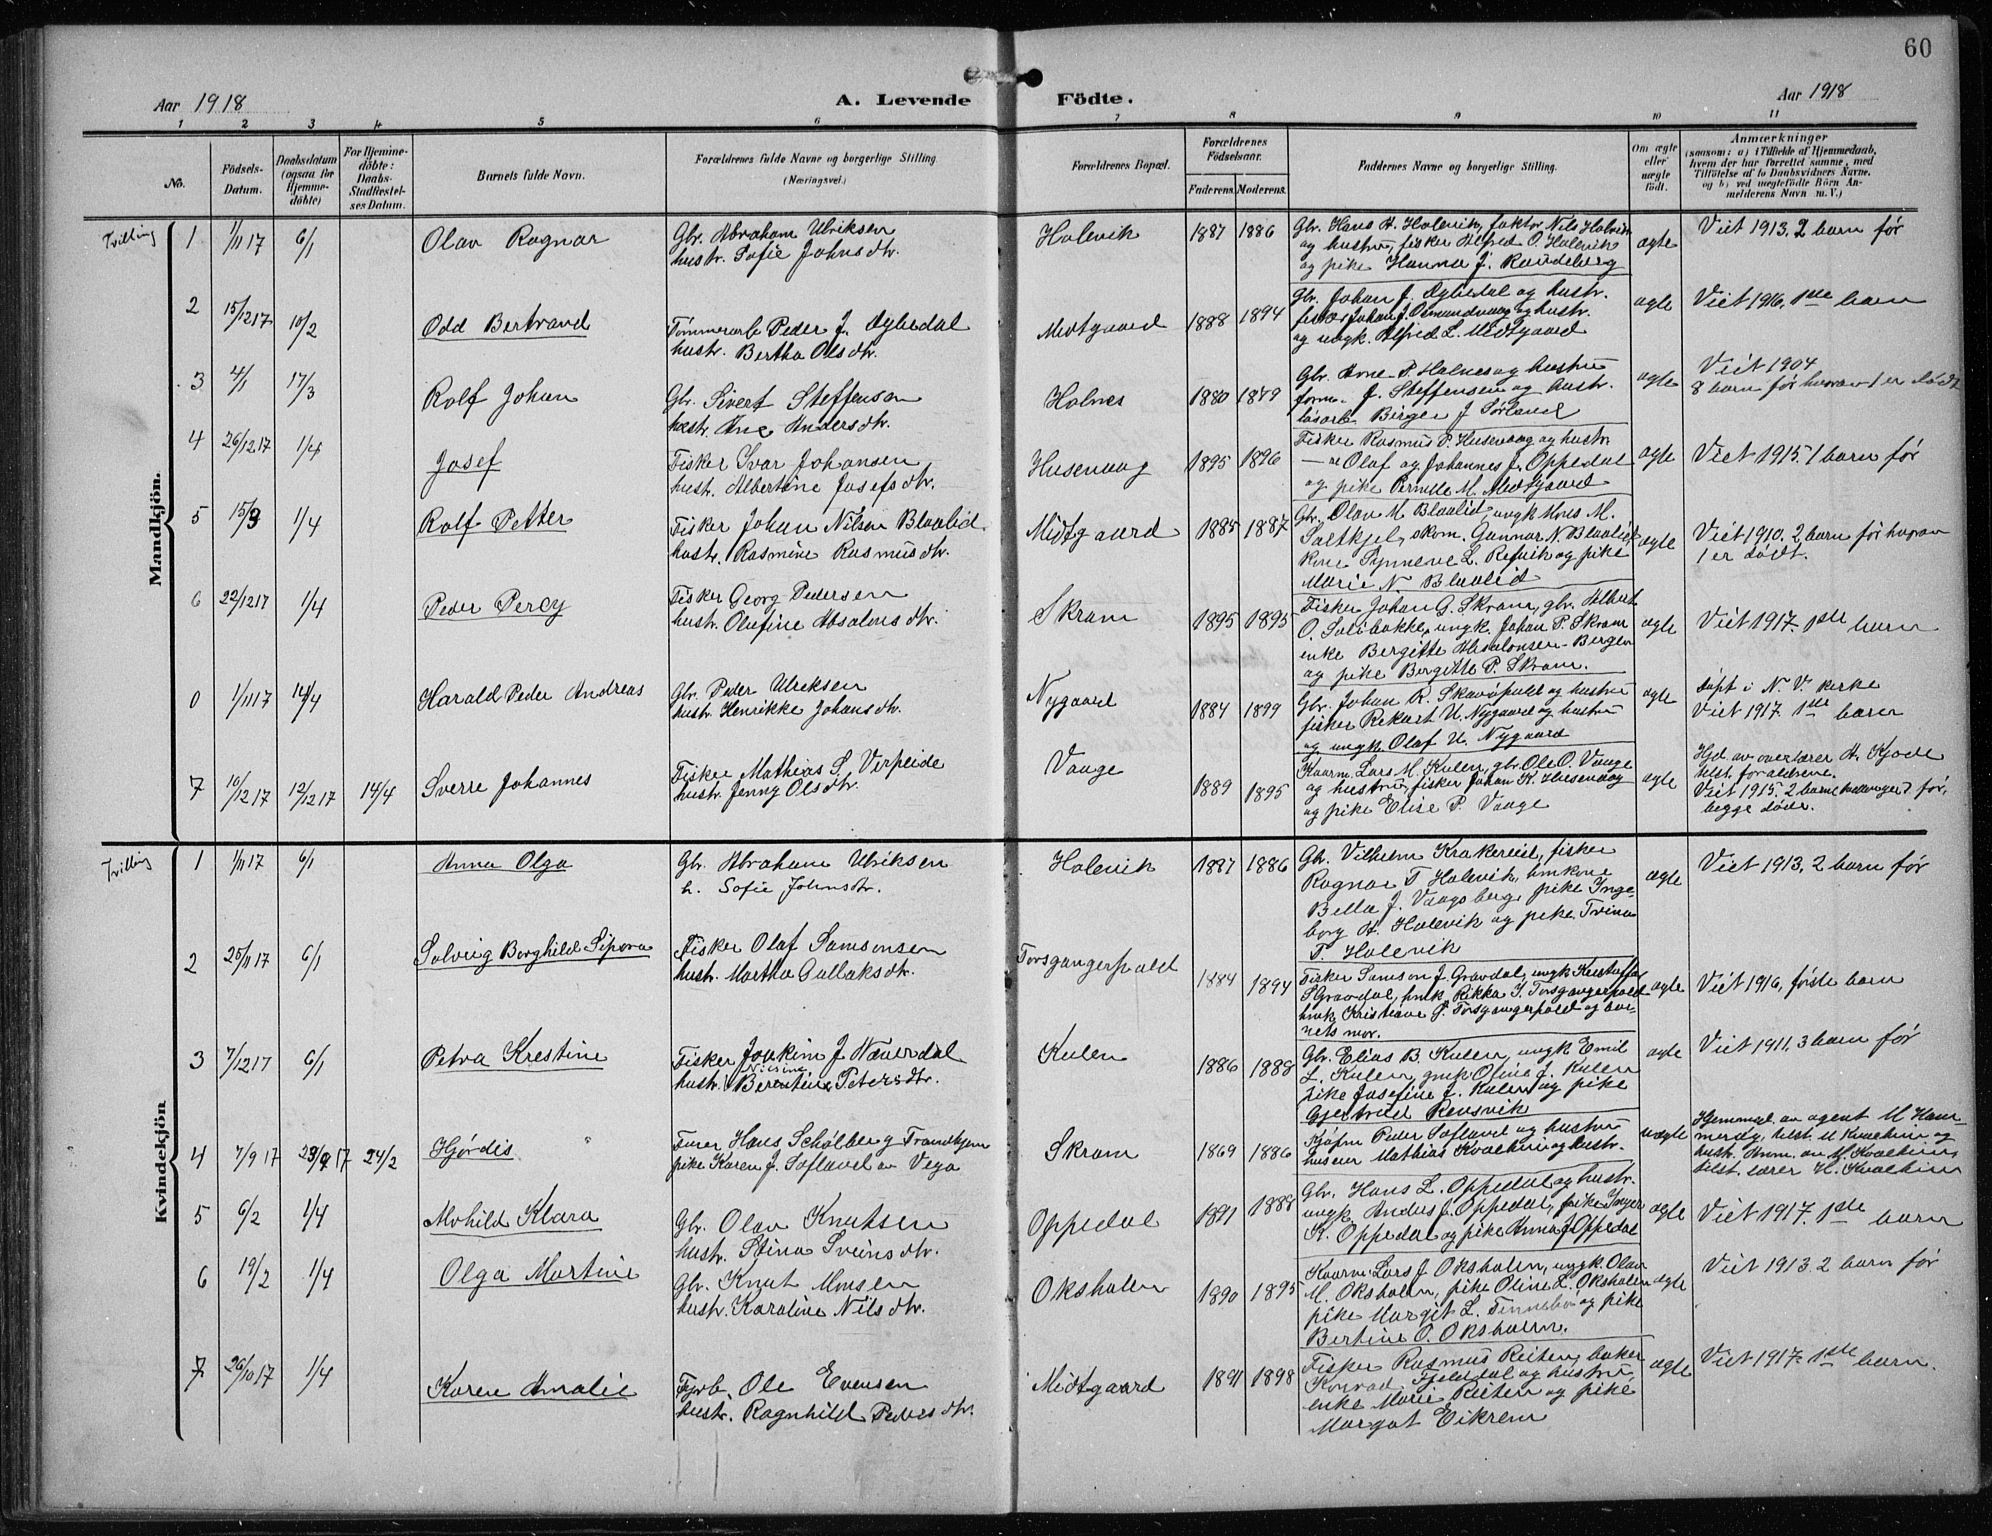 60
Aar 1918
A. Levende Födte.
Aar 1918
1 2 3 4 5 6 7 8 9 10 11
No.
Födsels-
Datum.
Daabsdatum
(ogsaa for
Hjemme-
döbte)
For Hjemme-
döbte:
Daabs-
Stadfæstel-
ses Datum.
Barnets fulde Navn.
Forældrenes fulde Navne og borgerlige Stilling.
(Næringsvei.)
Forældrenes Bopæl.
Forældrenes
Födselsaar.
Faderens. Moderens.
Faddernes Navne og borgerlige Stilling.
Om ægte
eller
uægte
födt.
Anmærkninger
(saasom: a) i Tilfælde af Hjemmedaab,
hvem der har forrettet samme, med
Tilföielse af to Daabsvidners Navne.
og b) ved uægtefödte Börn An-
melderens Navn m. V.)
Mandkjön.
Tvilling 1 1/11 17 6/1 Olav Ragnar
Gbr. Abraham Ulriksen
hustr. Sofie Johnsdtr.
Holevik 1887 1886
Gbr. Hans A. Holevik, faktor Nils Holevik
og hustru, fisker Alfred O. Holevik
og pike Hanna J. Raudeberg
ægte
Viet 1913. 2 barn før
2 15/12 17 10/2 Odd Bertrand
Tømmerarb. Peder J. Ogbedal
hustr. Bertha Olsdtr.
Midtgaard 1888 1894
Gbr. Johan J. Ogbedal og hustr.
fisker Johan J. Osmundvaag og hustr.
og ungk. Alfred L. Midtgaard
ægte
Viet 1916. 1ste barn
3 4/1 17/3 Rolf Johan
Gbr. Sivert Steffensen
hustr. Ane Andersdtr.
Holnes 1880 1879
Gbr. Arne P. Holnes og hustru
form. J. Steffensen og hustr.
løsarb. Birger J. Sørland
ægte
Viet 1904
8 barn før hvorav 1 er dødt
4 26/12 17 1/4 Josef
Fisker Ivar Johansen
hust. Albertine Josefsdtr.
Husevaag 1895 1896
Fisker Rasmus P. Husevaag og hustr.
Olaf og Johannes J. Oppedal
og pike Pernille M. Midtgaard
ægte
Viet 1915. 1 barn før
5 15/9 1/4 Rolf Petter
Fisker Johan Nilsen Blaalid
hustr. Rasmine Rasmusdtr.
Midtgaard 1885 1887
Gbr. Olav M. Blaalid, ungk. Mons M.
Saltkjel, skom. Gunnar N. Blaalid
kone Synneve L. Refvik og pike
Marie N. Blaalid
ægte
Viet 1910. 2 barn før hvorav
1 er dødt.
6 22/12 17 1/4 Peder Percy
Fisker Georg Pedersen
hustr. Olufine Absalonsdtr.
Skram 1895 1895
Fisker Johan G. Skram, gbr. Albert
O. Solibakke, ungk. Johan P. Skram
enke Bergitte Absalonsen - Bergen
og pike Bergitte P. Skram.
ægte
Viet 1917. 1ste barn
0 1/11 17 14/4 Harald Peder Andreas
Gbr. Peder Ulriksen
hustr. Henrikke Johansdtr.
Nygaard 1884 1899
Gbr. Johan R. Skavøpold og hustru
fisker Rikart U. Nygaard og hustru
og ungk. Olaf U. Nygaard
ægte
Døpt i N. V. kirke
Viet 1917. 1ste barn
7 10/12 17 12/12 17 14/4 Sverre Johannes
Fisker Mathias S. Verpeide
hustr. Jenny Olsdtr.
Vaage 1889 1895
Kaarm. Lars M. Kulen, gbr. Ole O. Vaage
og hustru, fisker Johan K. Husevaag
og pike Elise P. Vaage
ægte
Hjd. av overlærer A. Kjode
tilst. forældrene.
Viet 1915. 2 barn før,
begge døde.
Kvindekjön
Tvilling 1 1/11 17 6/1 Anna Olga
Gbr. Abraham Ulriksen
h. Sofie Johnsdtr.
Holevik 1887 1886
Gbr. Vilhelm Krakereid, fisker
Ragnar T. Holevik, hmkone
Bella J. Vaagsberg, pike Inge-
borg A. Holevik og pike Trina
T. Holevik
ægte
Viet 1913, 2 barn før
2 25/11 17 6/1 Solveig Borghild Sipora
Fisker Olaf Samsonsen
hustr. Martha Gullaksdtr.
Torsgangerpold 1884 1894
Fisker Samson J. Gravdal, ungk. Kristoffer
S. Gravdal, hmk. Rikka J. Torsgangerpold
hmk. Kristiane P. Torsgangerpold og bar-
nets mor.
ægte
Viet 1916, første barn
3 7/12 17 6/1 Petra Kristine
Fisker Joakim J. Nævesdal
Nicsine
hustr. Berentine Petersdtr.
Kulen 1886 1888
Gbr. Elias B. Kulen, ungk. Emil
L. Kulen, gmk. Oline J. Kulen
pike Josefine J. Kulen og pike
Gjertrud Rensvik
ægte
Viet 1911. 3 barn før
4 7/9 17 23/9 17 24/2 Hjørdis
Furer Hans Schølberg Trondhjem
pike Karen J. Softland av Vega
Skram 1869 1886
Kjøpm. Peder Softland og hustru
huseier Mathias Kvalheim og hustr.
uægte
Hjemmed. av agent M. Ham-
mersøy, tilst. M. Kvalheim og
hustr. Anm. av M. Kvalheim,
tilst. lærer H. Kvalheim
5 6/2 1/4 Alvhild Klara
Gbr. Olav Knutsen
hustr. Stina Sveinsdtr.
Oppedal 1891 1888
Gbr. Hans L. Oppedal og hustr.
ungk. Anders J. Oppedal, pike Inger
K. Oppedal og pike Anna J. Oppedal
ægte
Viet 1917. 1ste barn
6 19/2 1/4 Olga Martine
Gbr. Knut Monsen
hustr. Karoline Nilsdtr.
Oksholm 1890 1895
Kaarm. Lars J. Oksholm, ungk. Olav
M. Oksholm, pike Oline L. Oksholm
pike Margit L. Tennebø og pike
Bertine O. Oksholm.
ægte
Viet 1913. 2 barn før
7 26/10 17 1/4 Karen Amalie
Fjorb. Ole Evensen
hustr. Ragnhild Pedersdtr.
Midtgaard 1891 1898
Fisker Rasmus Reiten, baker
Konrad Fjeldal og hustru,
enke Marie Reiten og pike
Margot Eikrem
ægte
Viet 1917. 1ste barn.